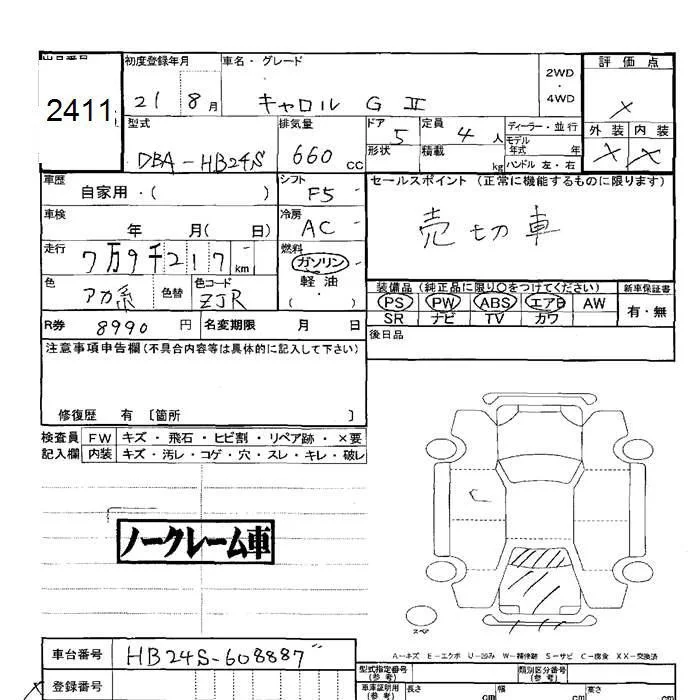 2411
初度登録年月
21 8月
車名・グレード
キャロル G II
2WD
・
4WD
評価点
×
型式
DBA-HB24S
排気量
660 CC
ドア 5
形状
定員 4 人
積載 kg
ディーラー・並行
モデル
年式 年
ハンドル 左・右
外装 内装
× ×
車歴
自家用・( )
シフト
F5
セールスポイント(正常に機能するものに限ります)
売切車
車検
年 月( 日)
冷房
AC
走行
7万9千217 km
燃料
ガソリン
軽油
( ・ )
色
アカ系
色替
色コード
ZJR
装備品(純正品に限り○をつけてください)
新車保証書
PS PW ABS エアB AW
有・無
SR ナビ TV カワ
R券 8990 円
名変期限 月 日
後日品
注意事項申告欄(不具合内容等は具体的に記入して下さい)
修復歴 有〔箇所 〕
検査員
記入欄
FW キズ・飛石・ヒビ割・リペア跡・×要
内装 キズ・汚レ・コゲ・穴・スレ・キレ・破レ
ノークレーム車
スペア
A-キズ E-エクボ U-凹み W-補修跡 S-サビ C-腐食 XX-交換済
車台番号 HB24S-608887
登録番号
型式指定番号
(参考)
類別区分番号
(参考)
車庫証明用
(参考)
長さ cm
幅 cm
高さ cm